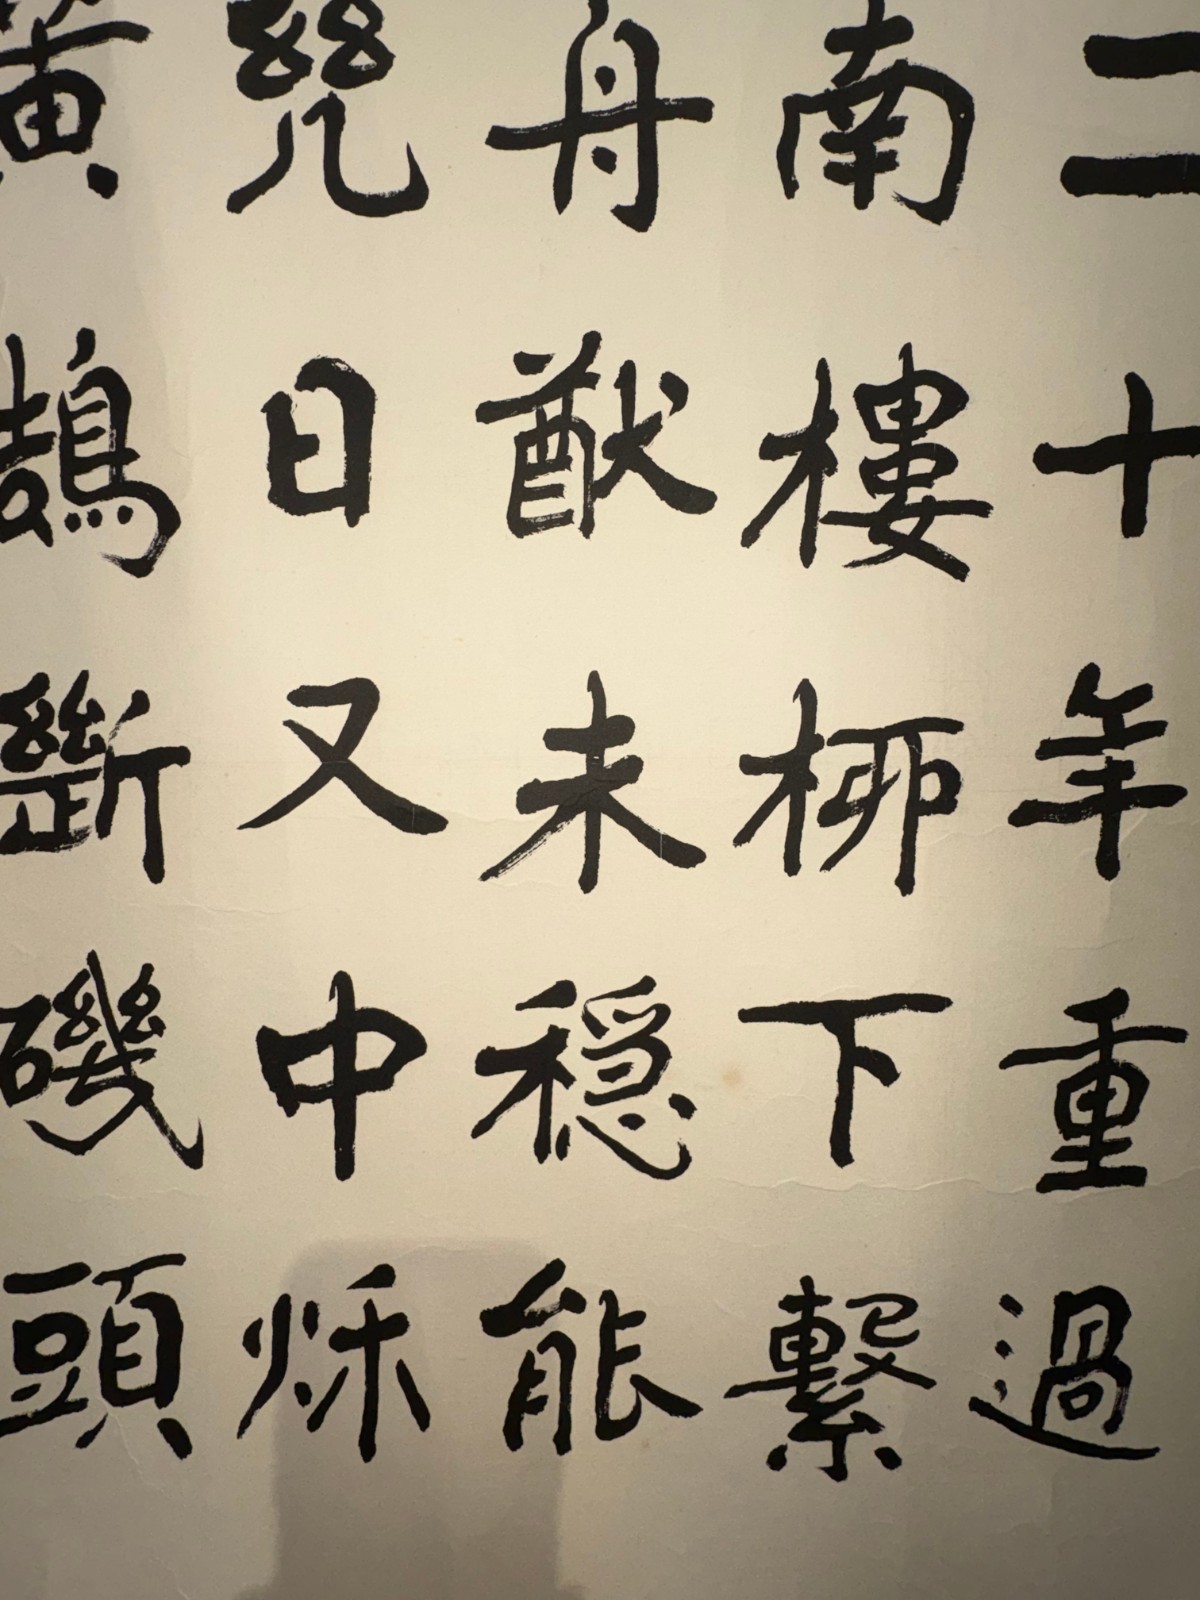 二十年重過
南樓桺下繫
舟猷未穩能
㡬日又中秌
黃鵠斷磯頭